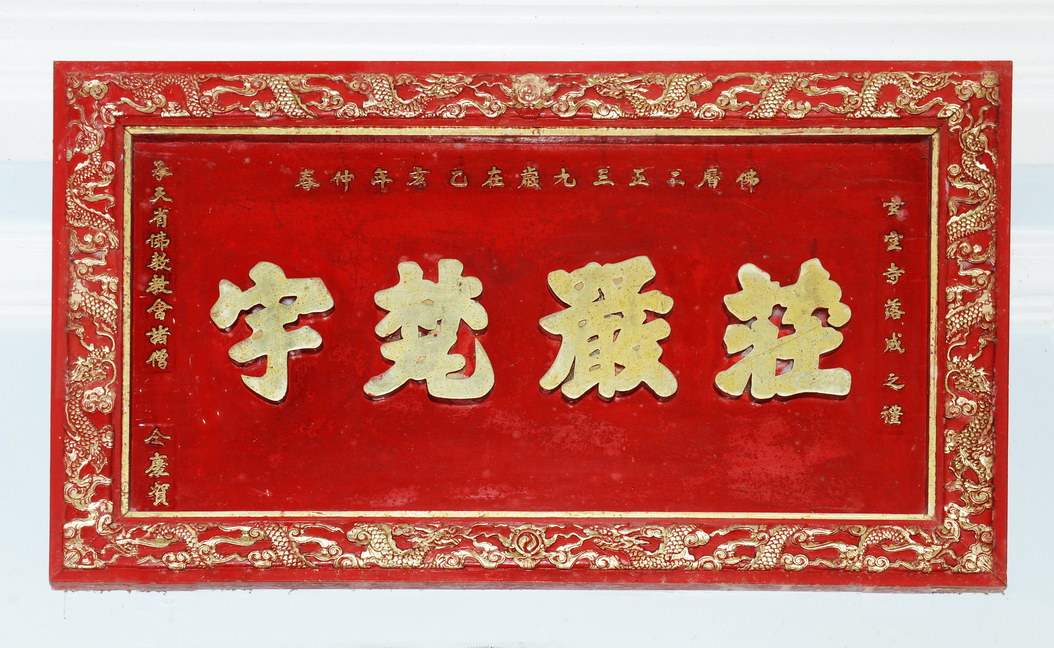 佛曆二五三九歲在己亥年仲春
玄空寺落成之禮
莊嚴梵宇
承天省佛教教會諸僧
仝慶賀